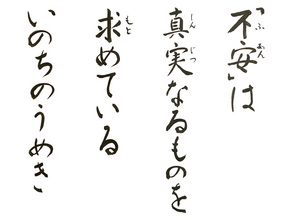 「不安」は
真実なるものを
求めている
いのちのうめき